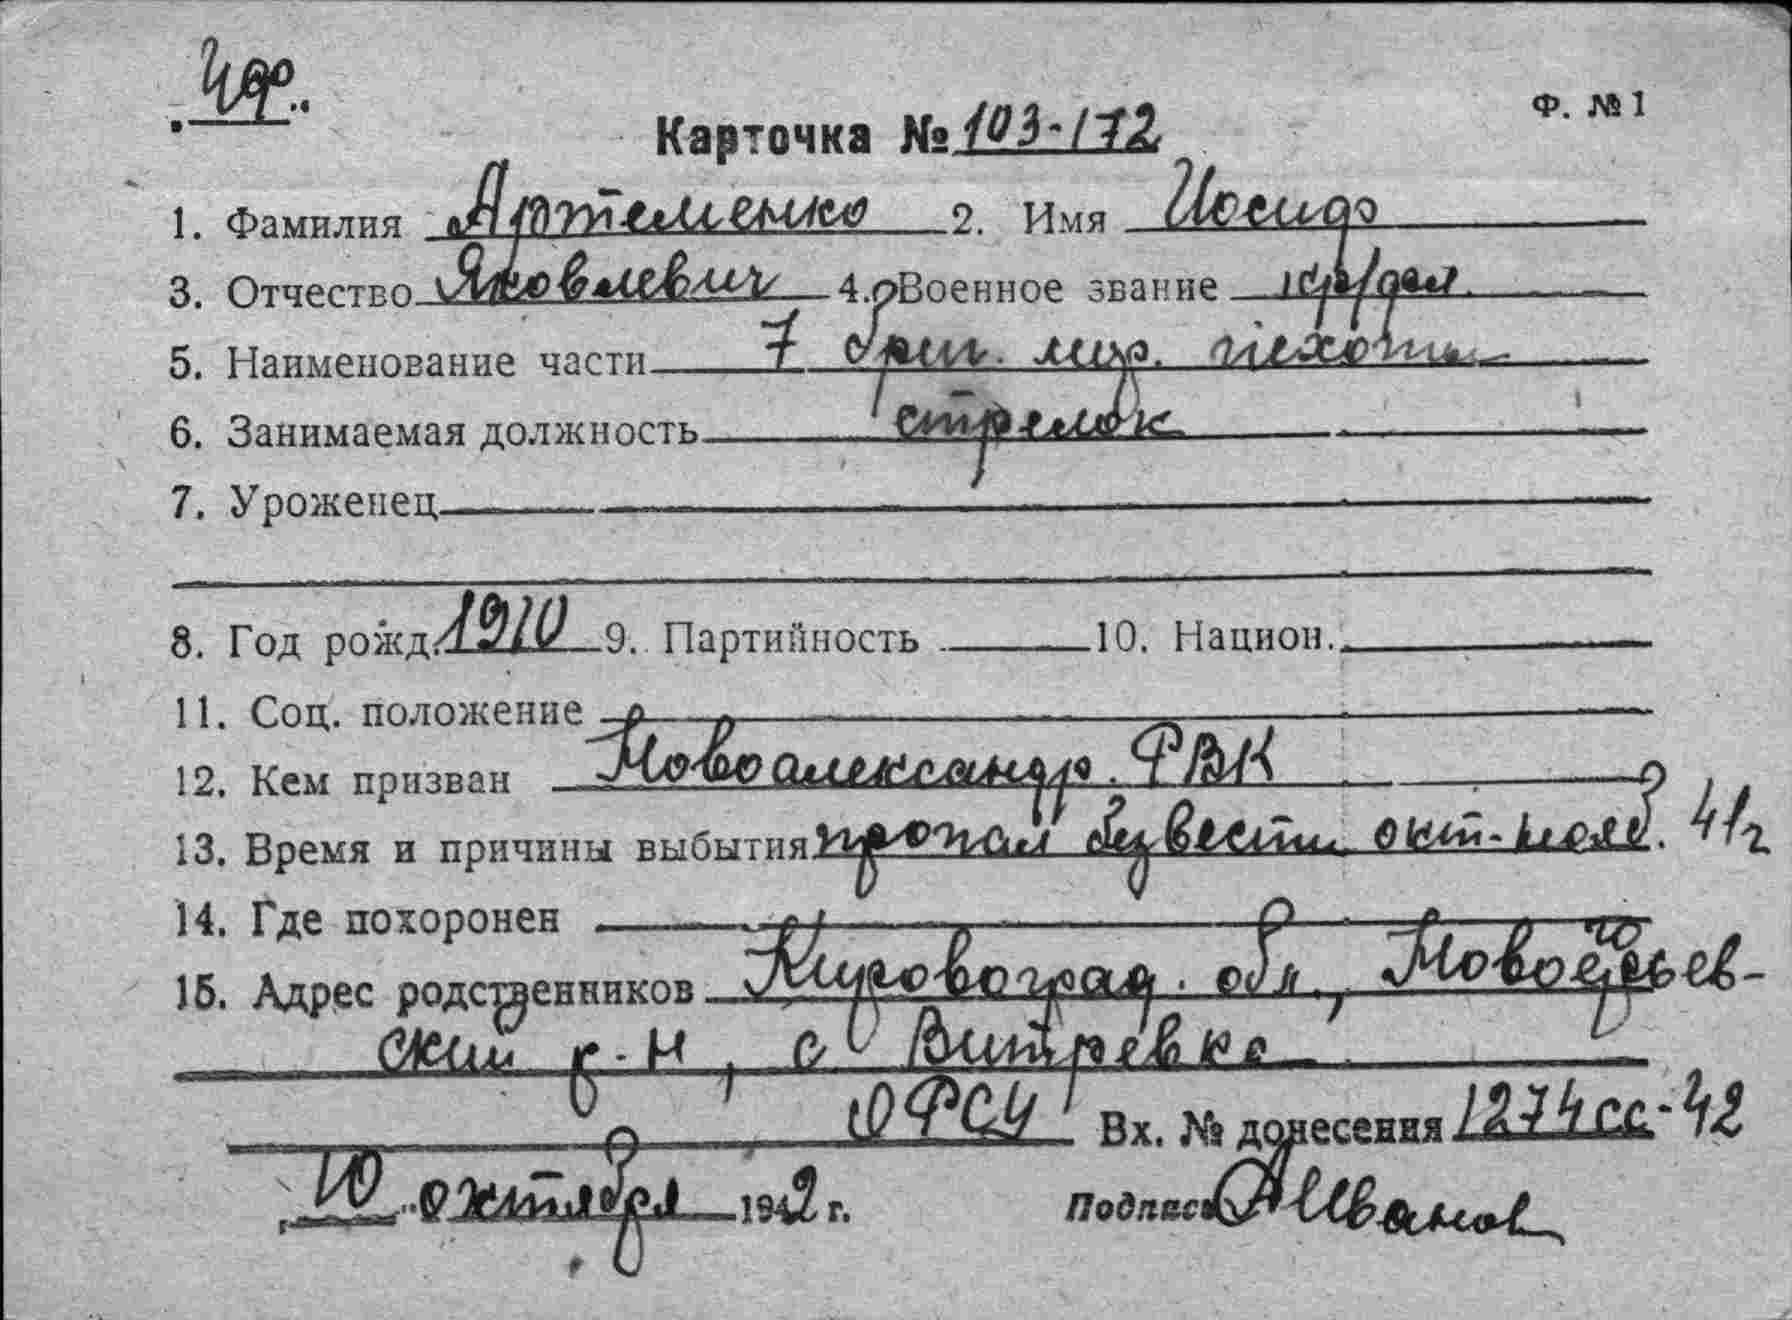 Ф. № 1
Карточка № 103-172
1. Фамилия Артеменко 2. Имя Иосиф
3. Отчество Яковлевич 4. Военное звание кр/фл
5. Наименование части 7 бриг. мор. пехоты
6. Занимаемая должность стрелок
7. Уроженец
8. Год рожд. 1910 9. Партийность 10. Национ.
11. Соц. положение
12. Кем призван Новоалександр. РВК
13. Время и причины выбытия пропал безвести окт-нояб. 41 г
14. Где похоронен
15. Адрес родственников Кировоград. обл.,
ский р-н, с
Вх. № донесения 1274сс-42
10 октября 1942 г. Подпись Иванов